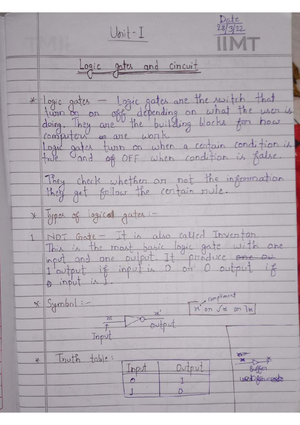 Unit - I
Date
28/9/22
IIMT
Logic gates and circuit
* Logic gates — Logic gates are the switch that
turn on or off depending on what the user is
doing. They are the building blocks for how
computers are work.
Logic gates turn on when a certain condition is
true and of OFF when condition is false.
They check whether or not the information
they get follow the certain rule.
* Types of logical gates :-
1 NOT Gate - It is also called Inventor
This is the most basic logic gate with one
input and one output. It produce
1 output if input is 0 or 0 output if
input is 1.
* Symbol :-
complement
x' or
Input
Output
* Truth table :
Input Output
0 1
1 0
Buffer